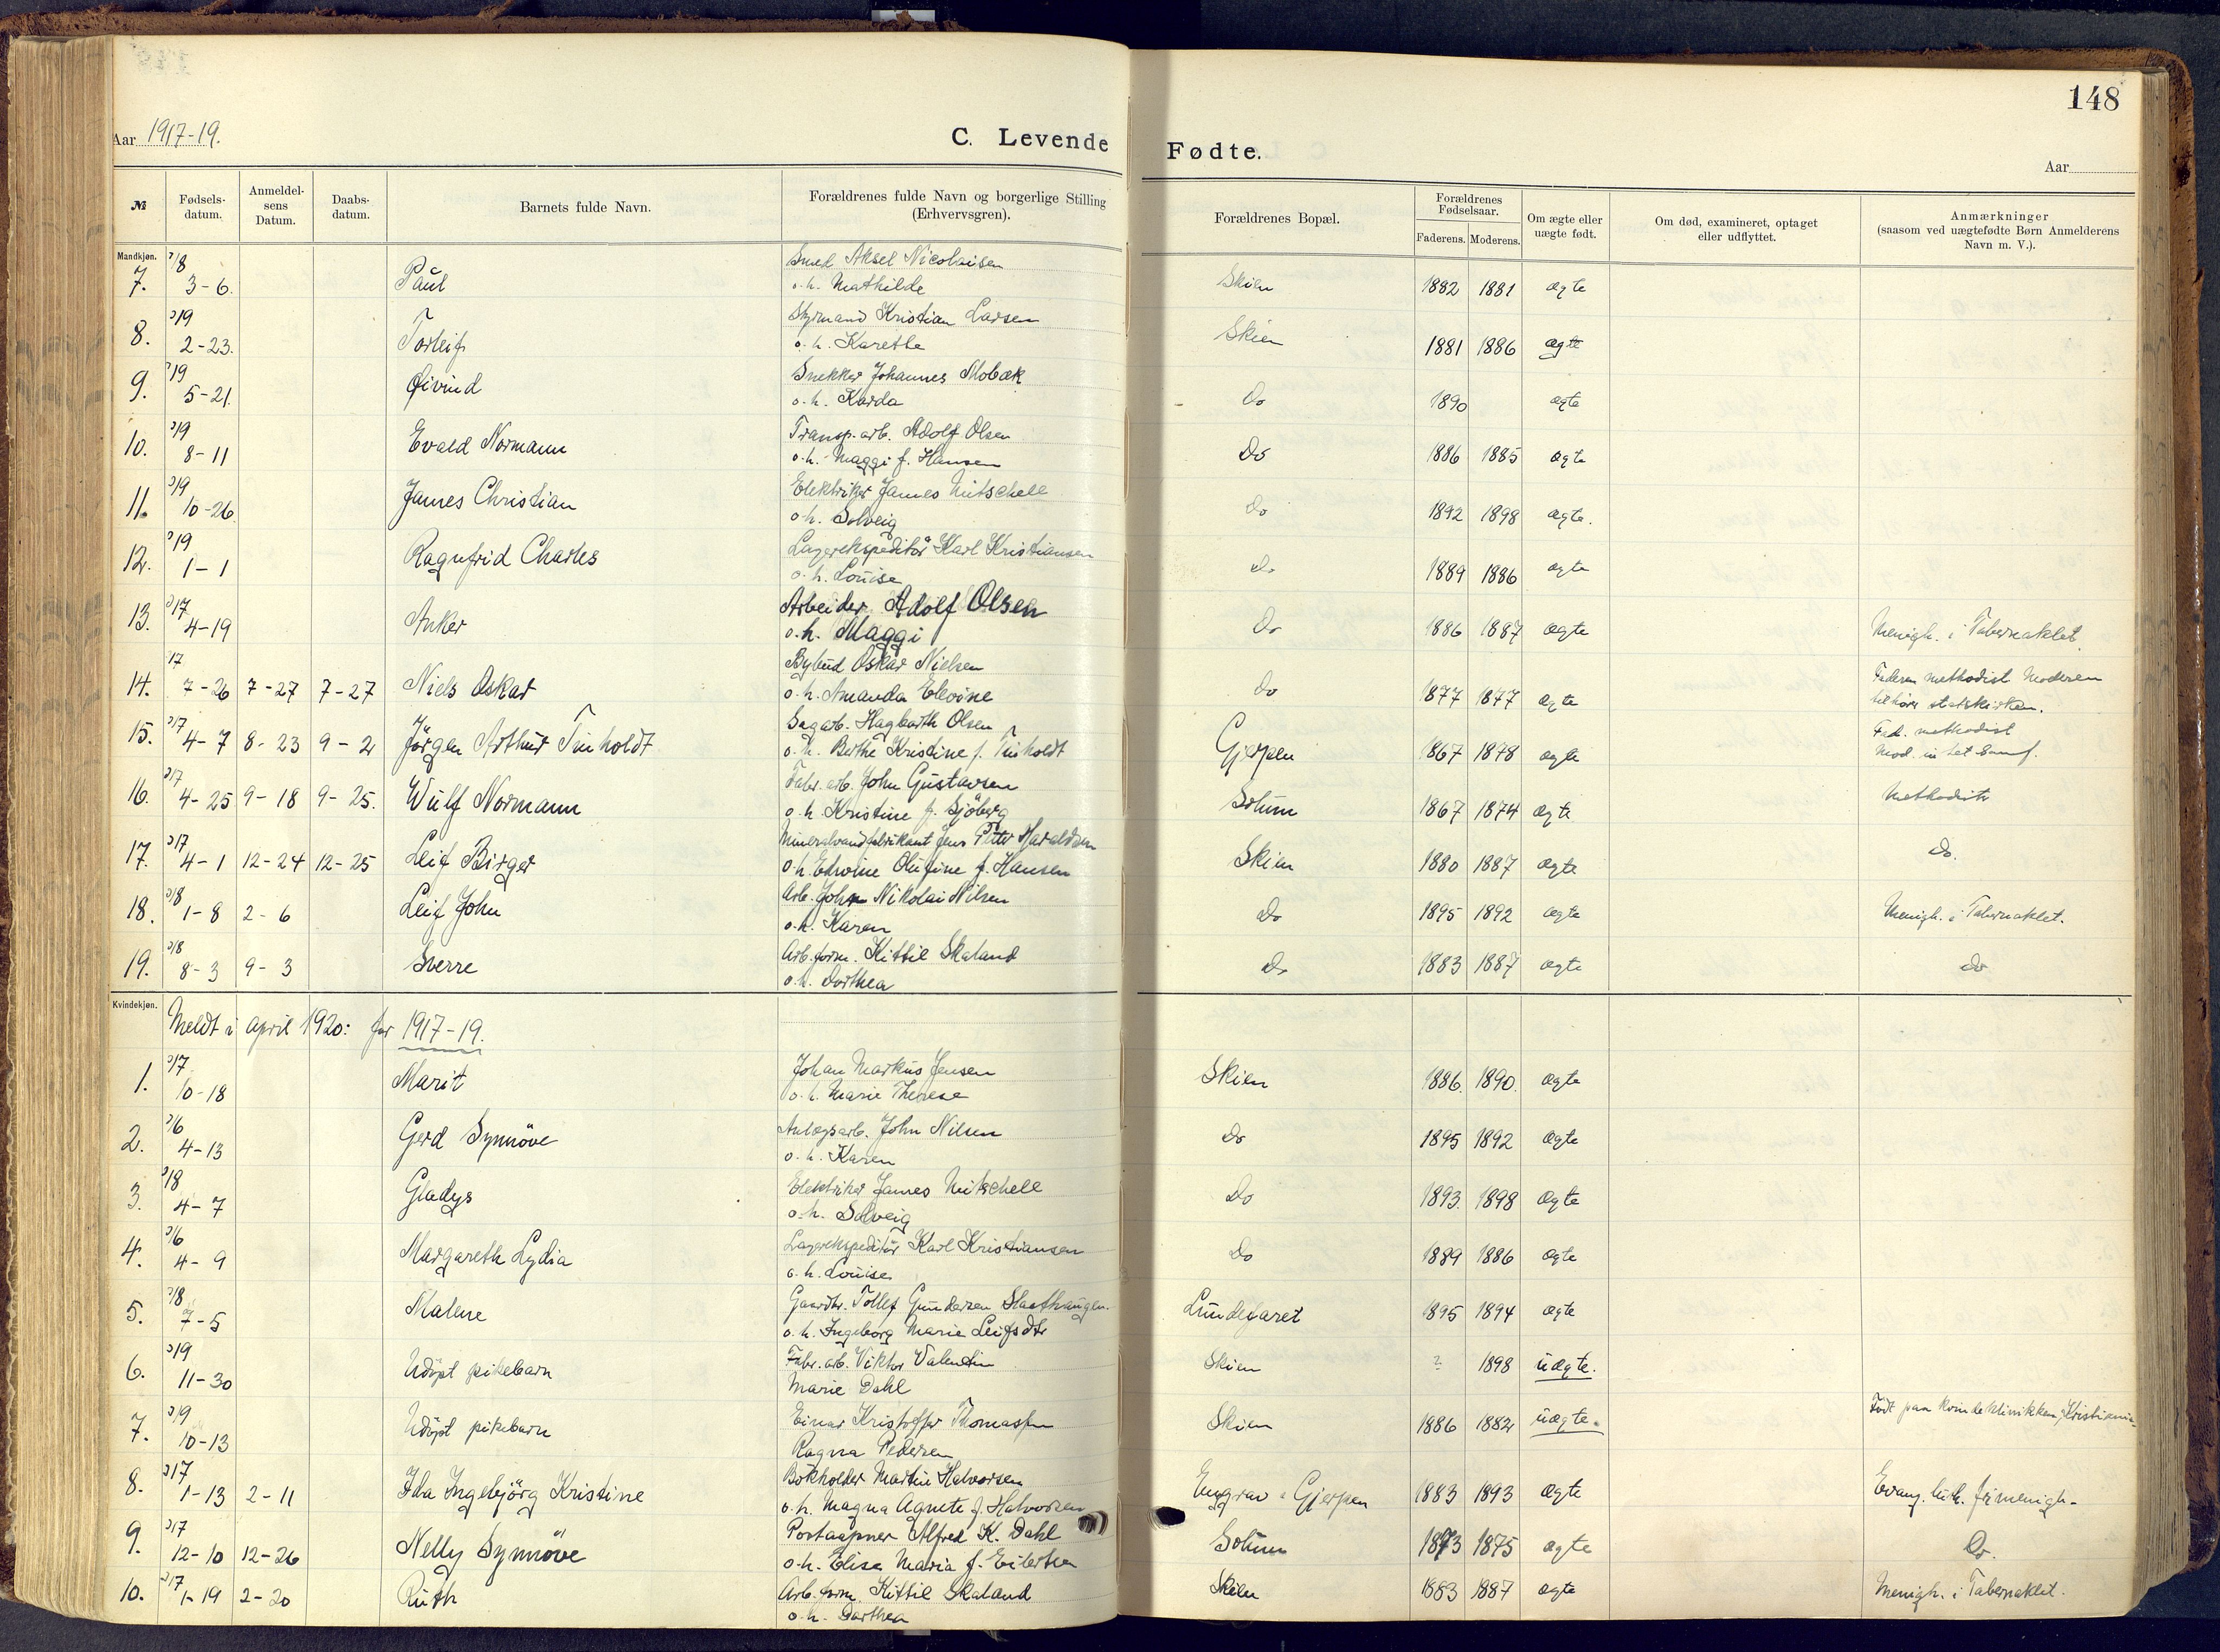 148
Aar 1917-19.
C. Levende Fødte.
Aar
№
Fødselsdatum.
Anmeldelsens Datum.
Daabsdatum.
Barnets fulde Navn.
Forældrenes fulde Navn og borgerlige Stilling (Erhvervsgren).
Forældrenes Bopæl.
Forældrenes Fødselsaar.
Faderens. Moderens.
Om ægte eller uægte født.
Om død, examineret, optaget eller udflyttet.
Anmærkninger (saasom ved uægtefødte Børn Anmelderens Navn m. V.).
Mandkjøn.
7. 18 3-6. Paul Smed Aksel Nicolaisen Skien 1882 1881 ægte
o. h. Mathilde
8. 19 2-23. Torleif Styrmand Kristian Larsen Skien 1881 1886 ægte
o. h. Karethe
9. 19 5-21. Øivind Snekker Johannes Mobæk Do 1890 ægte
o. h. Karda
10. 19 8-11 Evald Normann Transp. arb. Adolf Olsen Do 1886 1885 ægte
o. h. Maggi f. Hansen
11. 19 10-26. James Christian Elektriker James Mitschell Do 1892 1898 ægte.
o. h. Solveig
12. 19 1-1 Ragnfrid Charles Lagerekspeditör Karl Kristiansen Do 1889 1886 ægte
o. h. Louise
13. 17 4-19 Anker Arbeider Adolf Olsen Do 1886 1887 ægte Menigh. i Tabernaklet.
o. h. Maggi
14. 17 7-26 7-27 7-27 Niels Oskar Bybud Oskar Nielsen Do 1877 1877 ægte Faderen methodist Moderen
o. h. Amanda Elevine tilhører statskirken.
15. 17 4-7 8-23 9-2 Jörgen Arthur Tinholdt Sagarb. Hagbarth Olsen Gjerpen 1867 1878 ægte Fad. methodist
o. h. Berthe Kristine f. Tinholdt Mod. intet Samf.
16. 17 4-25 9-18 9-25. Wulf Normann Fabr. arb. John Gustavsen Solum 1867 1874 ægte Methodister
o. h. Kristine f. Sjöberg
17. 17 4-1 12-24 12-25 Leif Birger Mineralvandfabrikant Jens Peter Haraldsen Skien 1880 1887 ægte Do.
o. h. Edvine Olufine f. Hansen
18. 18 1-8 2-6 Leif John Arb. John Nikolai Nilsen Do 1895 1892 ægte Menigh. i Tabernaklet.
o. h. Karen
19. 18 8-3 9-3 Sverre Arb.form. Kittil Skaland Do 1883 1887 ægte do
o. h. Dorthea
Kvindekjøn.
Meldt i april 1920: for 1917-19.
1. 17 10-18 Marit Johan Markus Jensen Skien 1886. 1890. ægte
o. h. Marie Therese
2. 16 4-13 Gerd Synnöve Anlægsarb. John Nilsen Do 1895 1892 ægte
o. h. Karen
3. 18 4-7 Gladys Elektriker James Mitschell Do 1893. 1898 ægte
o. h. Solveig
4. 16 4-9 Margareth Lydia Lagerekspeditör Karl Kristiansen Do 1889 1886 ægte
o. h. Louise
5. 18 7-5 Malene Gaardbr. Tollef Gundersen Slaathaugen. Lundegaret 1895 1894 ægte
o. h. Ingeborg Marie Leifsdtr
6. 19 11-30 Udöpt pikebarn Fabr. arb. Viktor Valentin Skien ? 1898 uægte.
Marie Dahl
7. 19 10-13 Udöpt pikebarn Einar Kristoffer Thomassen Skien 1886 1882 uægte. Född paa Kvindeklinikken, Kristiania.
Ragna Pedersen
8. 17 1-13 2-11 Ida Ingebjörg Kristine Bokholder Martin Halvorsen Enggrav i Gjerpen 1883 1893 ægte Evang. luth. frimenigh.
o. h. Magna Agnete f. Halvorsen
9. 17 12-10 12-26 Nelly Synnöve Postaapner Alfred K. Dahl Solum 1873 1875 ægte Do.
o. h. Elise Maria f. Eilertsen
10. 17 1-19 2-20 Ruth Arb. form. Kittil Skaland Skien 1883 1887 ægte Menigh. i Tabernaklet.
o. h. Dorthea